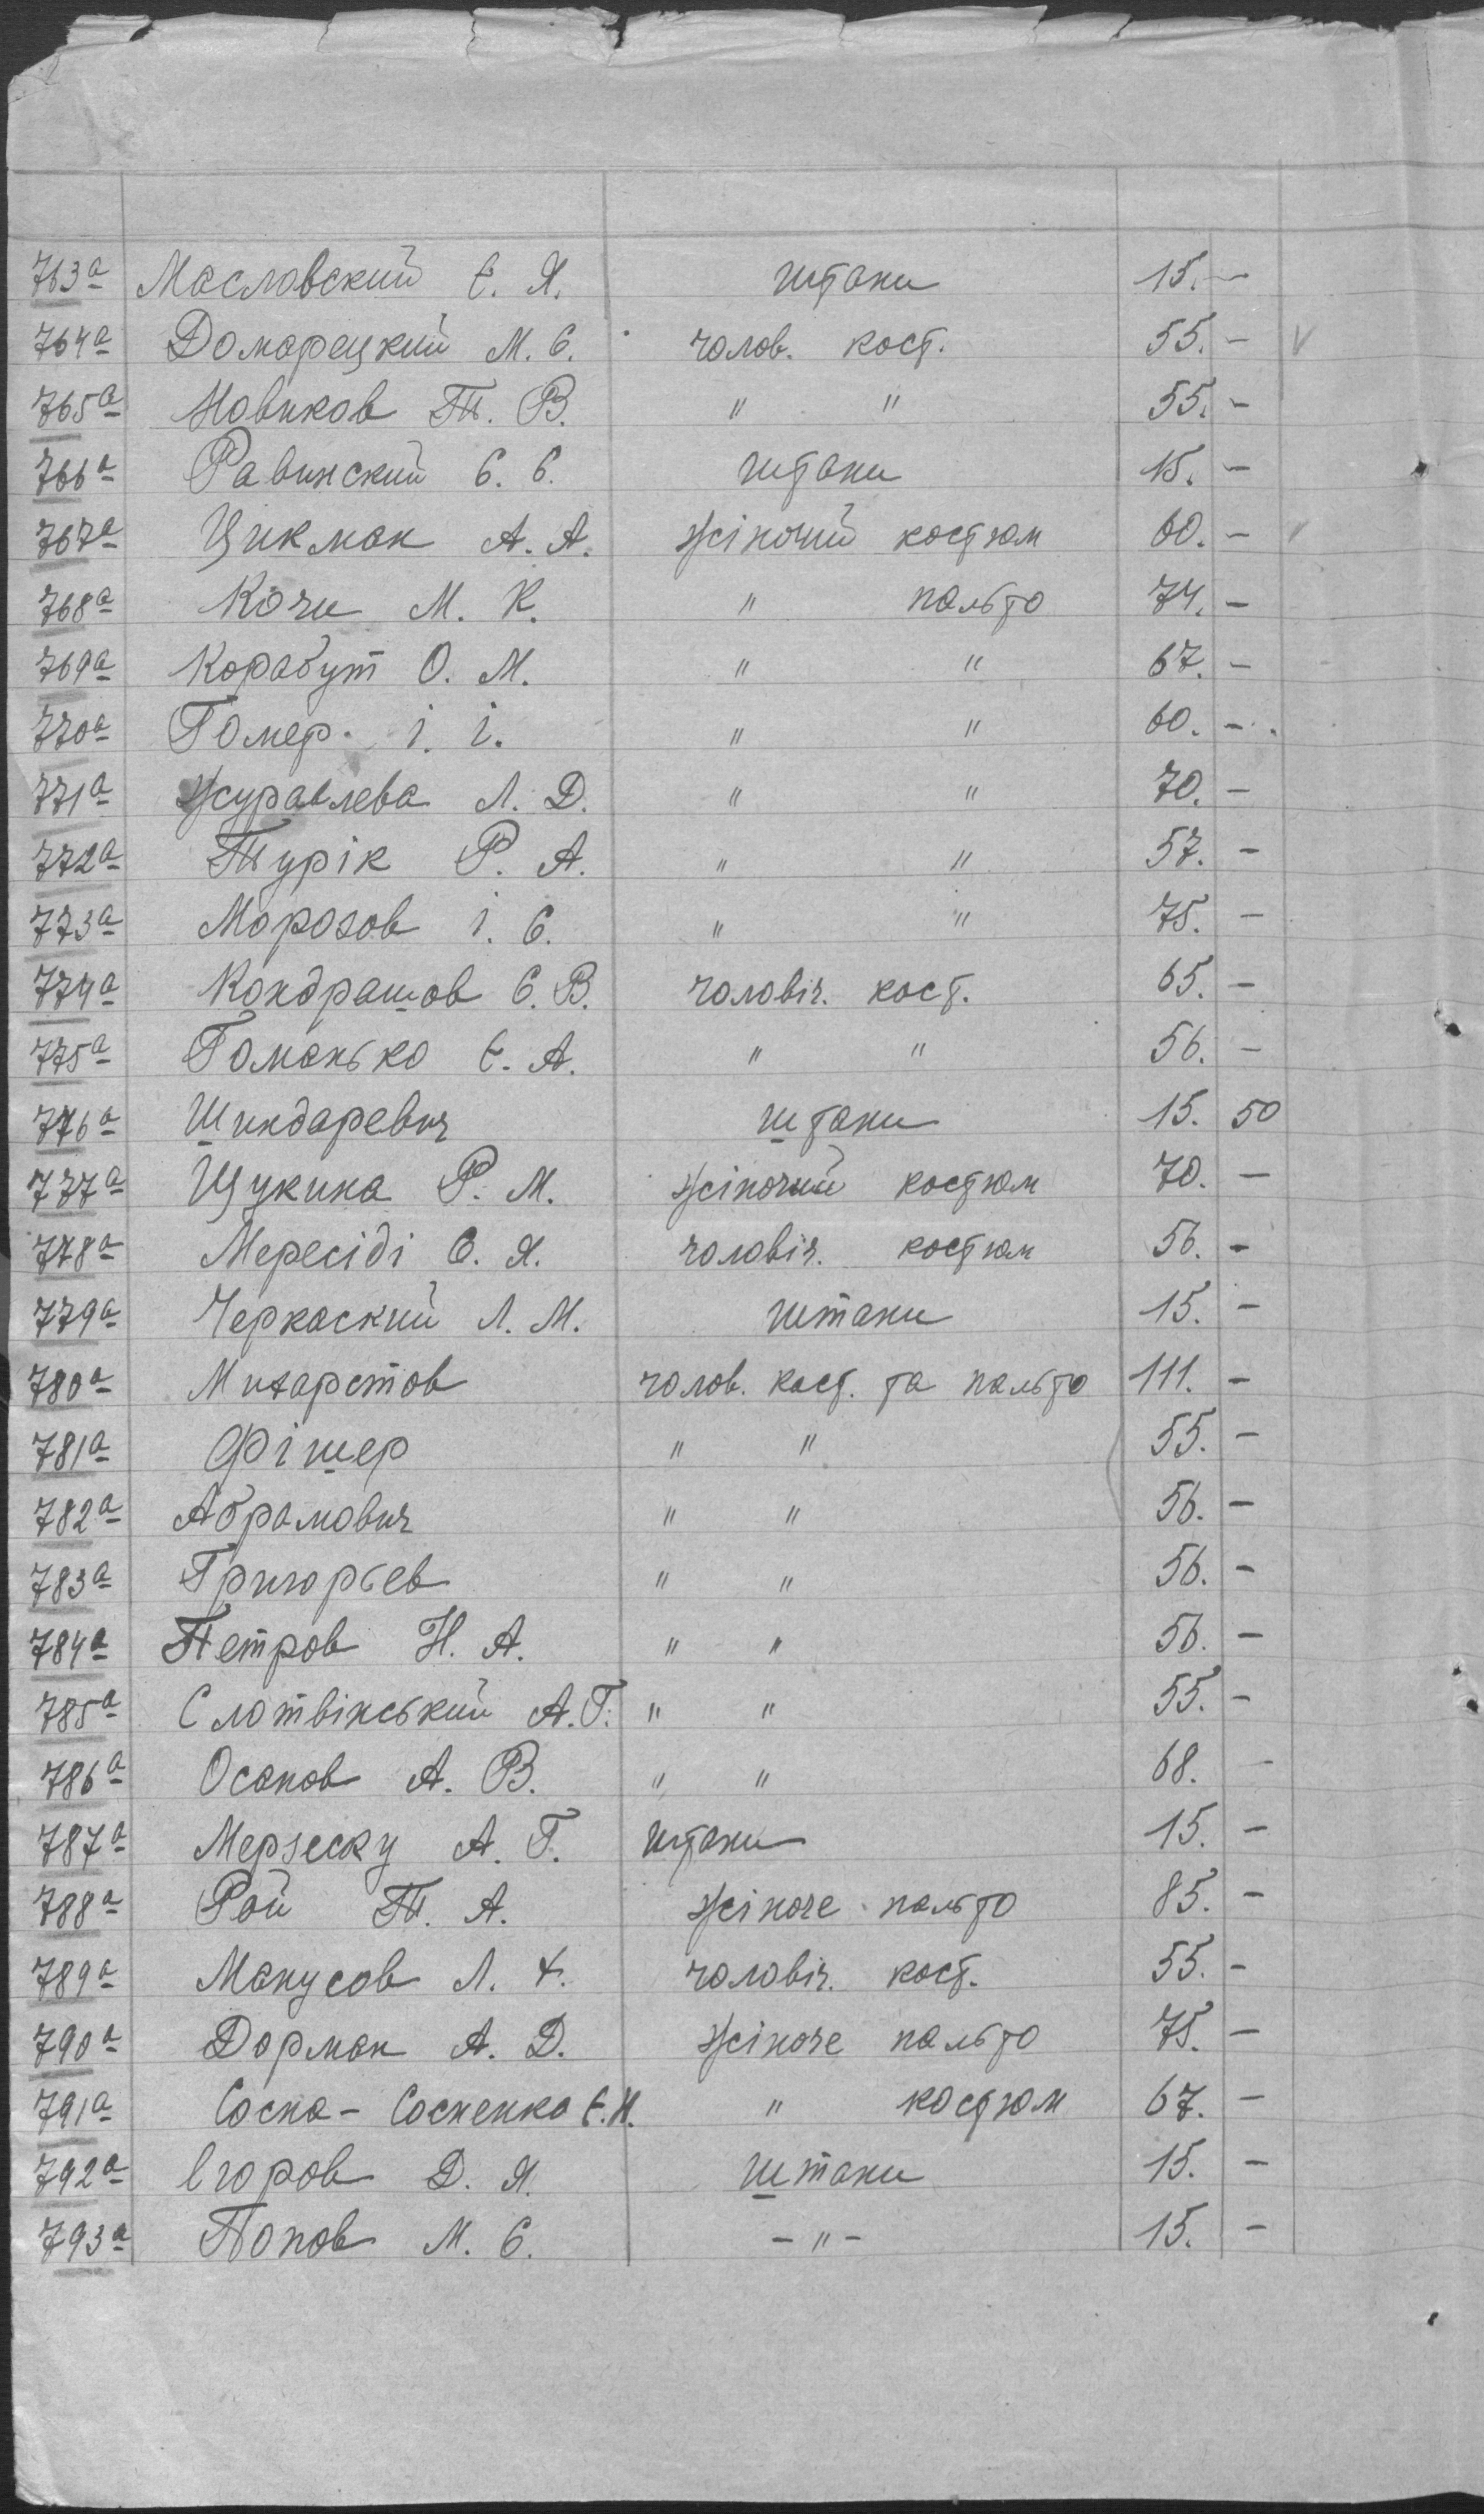 763а Масловский Є. Я. штани 15. —
764а Домарецкий М. Є. чолов. кост. 55. — V
765а Новиков Т. В. " " 55. —
766а Равинский Є. Є. штани 15. —
767а Цикман А. А. жіночий костюм 60. —
768а Кочи М. К. " пальто 74. —
769а Корабут О. М. " " 67. —
770а Гомер І. І. " " 60. —
771а Журавлева Л. Д. " " 70. —
772а Турік Р. А. " " 57. —
773а Морозов І. Є. " " 75. —
774а Кондрашов Є. В. чоловіч. кост. 65. —
775а Гоманько Є. А. " " 56. —
776а Шиндаревич штани 15. 50
777а Щукина Р. М. жіночий костюм 70. —
778а Мересіді Є. Я. чоловіч. костюм 56. —
779а Черкаский Л. М. штани 15. —
780а чолов. кост. та пальто 111. —
781а Фішер " " 55. —
782а Абрамович " " 56. —
783а Григорьев " " 56. —
784а Петров Н. А. " " 56. —
785а Слотвінський А. Г. " " 55. —
786а Осанов А. В. " " 68. —
787а Мерзеску А. Г. штани 15. —
788а Рой Т. А. жіноче пальто 85. —
789а Манусов Л. чоловіч. кост. 55. —
790а Дорман А. Д. жіноче пальто 75. —
791а Сосна-Сосненко Є. Н. " костюм 67. —
792а Єгоров Д. Я. штани 15. —
793а Попов М. Є. — " — 15. —